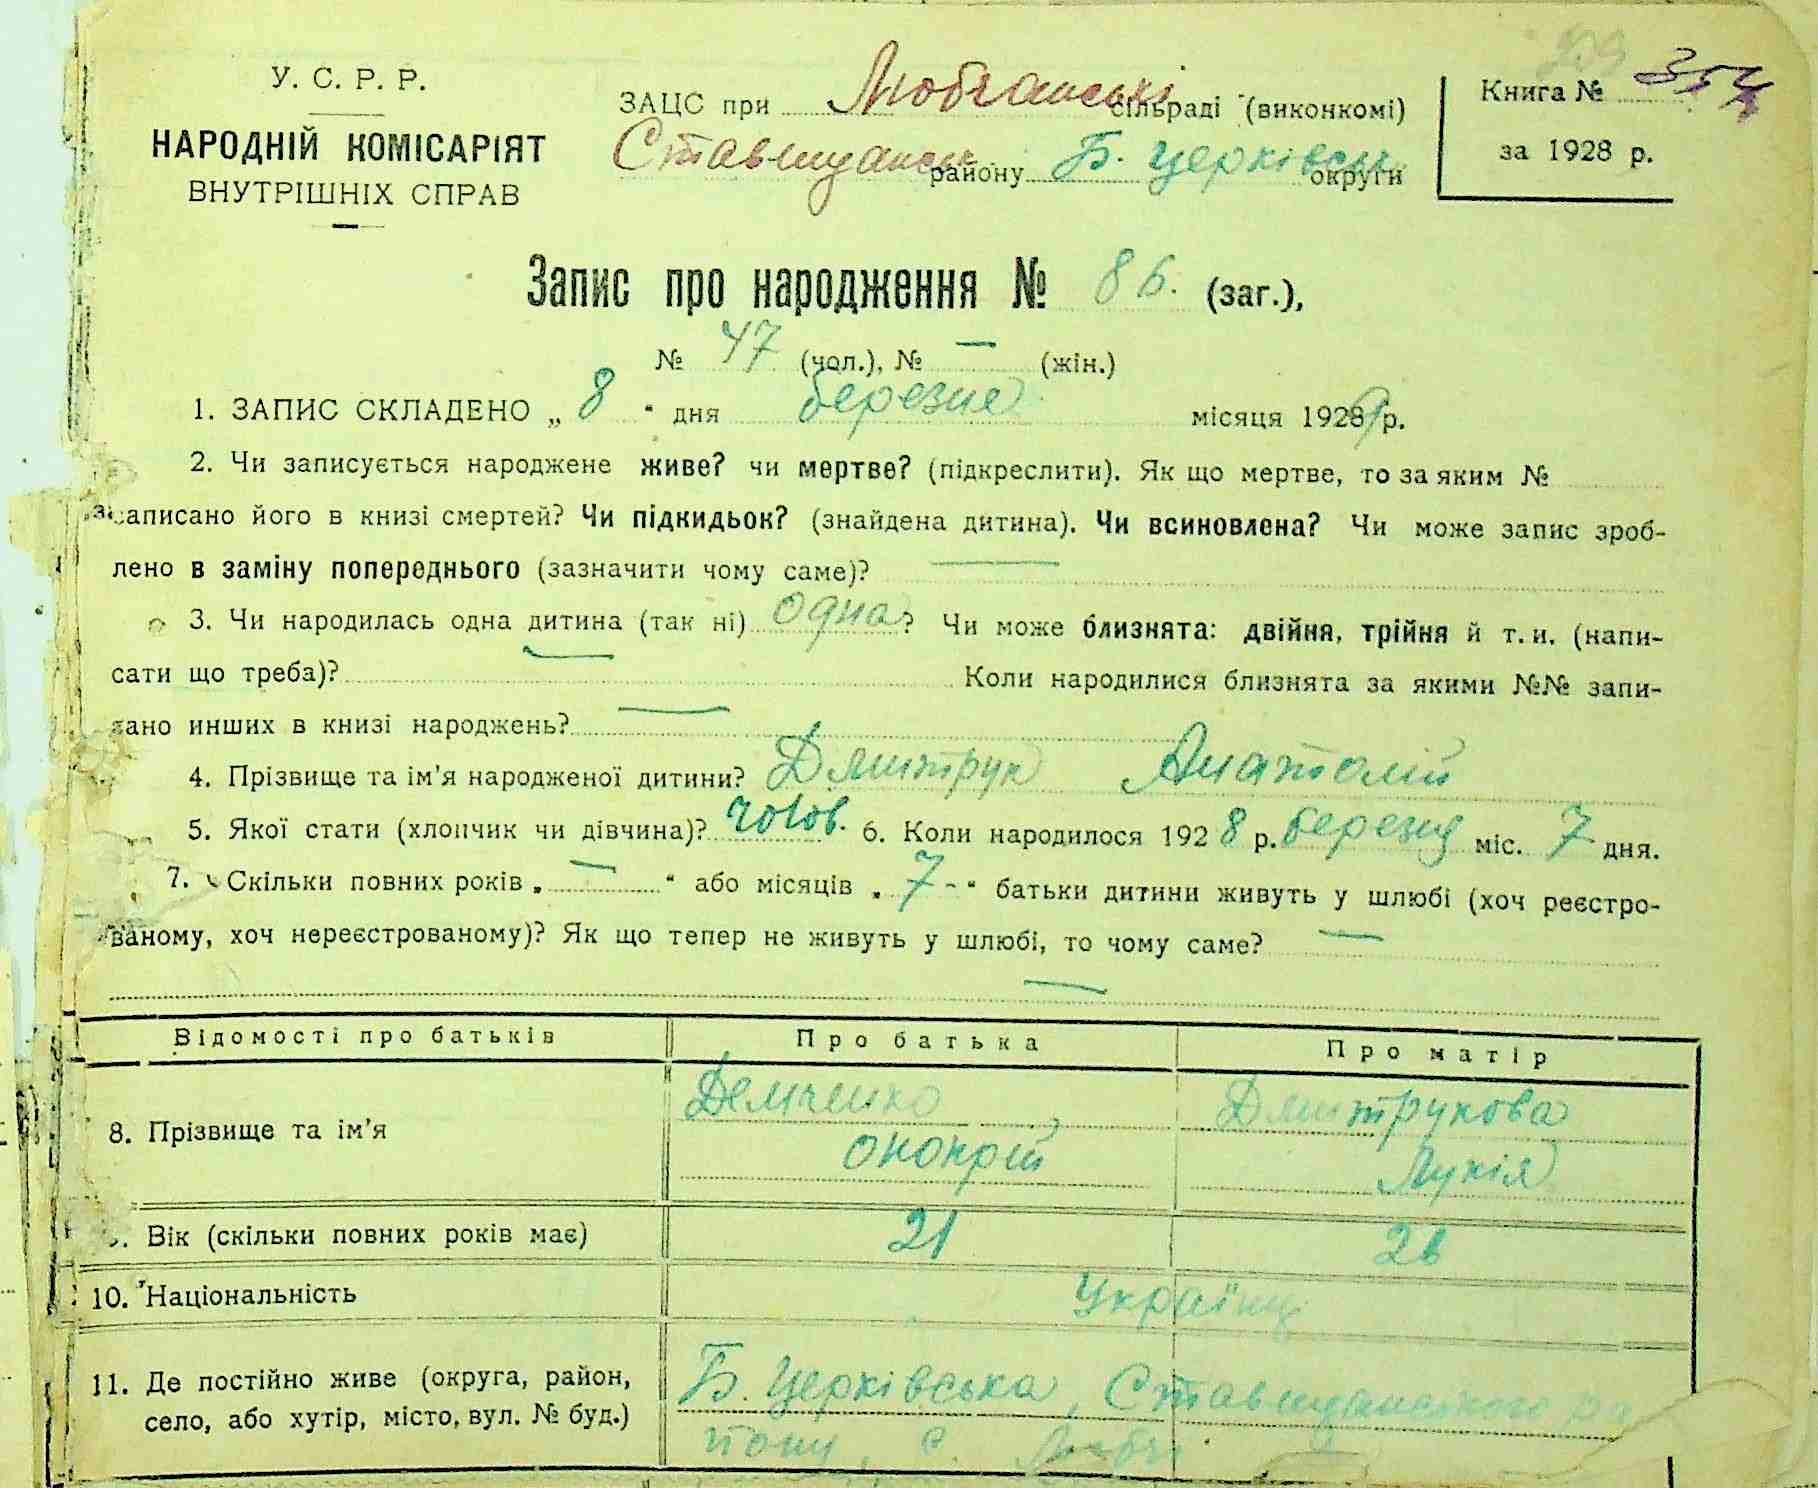 У. С. Р. Р.
НАРОДНІЙ КОМІСАРІЯТ
ВНУТРІШНІХ СПРАВ
ЗАЦС при Любчанські сільраді (виконкомі)
Ставищанськ. району Б. Церківськ. округи
Книга № 354
за 1928 р.
Запис про народження № 86. (заг.),
№ 47 (чол.), № — (жін.)
1. ЗАПИС СКЛАДЕНО „ 8 “ дня березня місяця 1928 р.
2. Чи записується народжене живе? чи мертве? (підкреслити). Як що мертве, то за яким №
записано його в книзі смертей? Чи підкидьок? (знайдена дитина). Чи всиновлена? Чи може запис зроб-
лено в заміну попереднього (зазначити чому саме)? —
3. Чи народилась одна дитина (так ні) одна? Чи може близнята: двійня, трійня й т. и. (напи-
сати що треба)? — Коли народилися близнята за якими №№ запи-
сано инших в книзі народжень? —
4. Прізвище та ім’я народженої дитини? Дмитрук Анатолій
5. Якої стати (хлопчик чи дівчина)? чолов. 6. Коли народилося 1928 р. березня міс. 7 дня.
7. Скільки повних років „ — “ або місяців „ 7 - “ батьки дитини живуть у шлюбі (хоч реєстро-
ваному, хоч нереєстрованому)? Як що тепер не живуть у шлюбі, то чому саме? —
—
Відомості про батьків Про батька Про матір
8. Прізвище та ім’я Демченко Дмитрукова
Онопрій Лукія
9. Вік (скільки повних років має) 21 26
10. Національність Українці
11. Де постійно живе (округа, район, Б. Церківська, Ставищанського ра
село, або хутір, місто, вул. № буд.) йону, с.